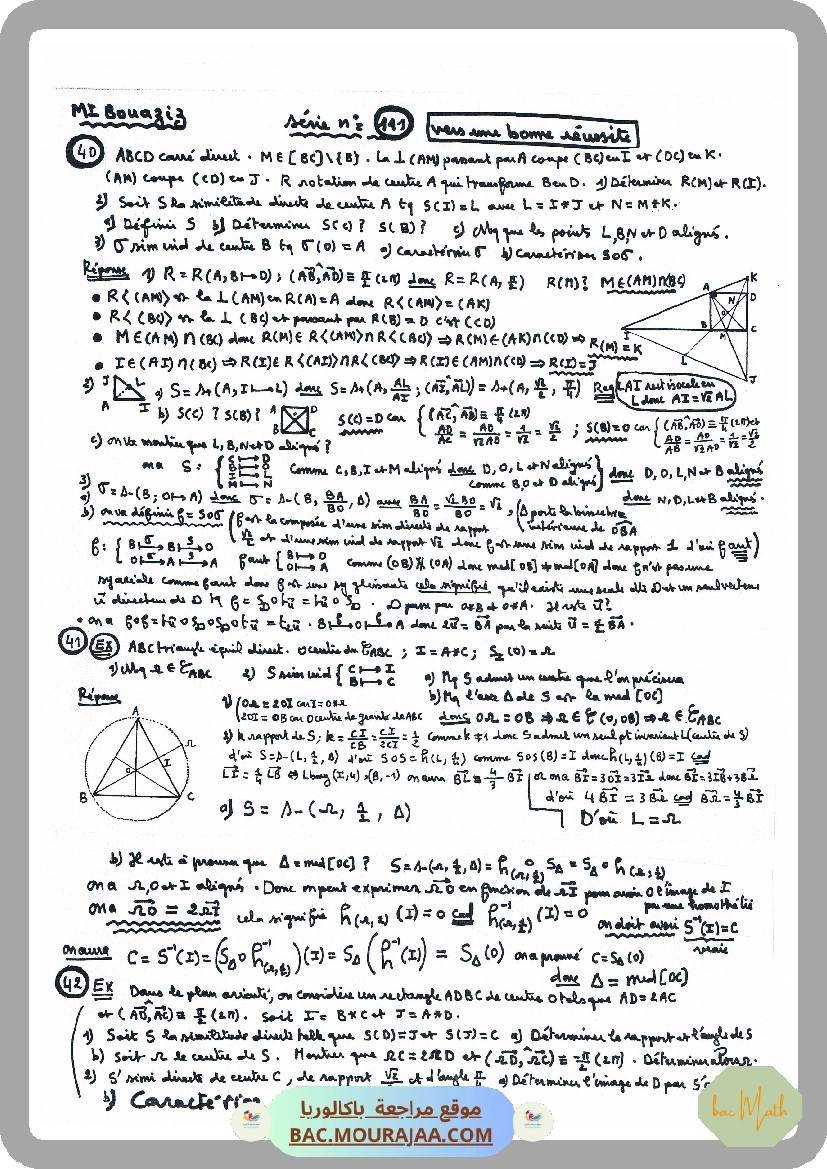 MI Bouaziz
Série n°: 111 vers une bonne réussite
40 ABCD carré direct. M∈[BC]\{B}. La ⊥(AM) passant par A coupe (BC) en I et (DC) en K.
(AM) coupe (CD) en J. R rotation de centre A qui transforme B en D. 1) Déterminer R(M) et R(I).
2) Soit S la similitude directe de centre A tq S(I)=L avec L=I*J et N=M*K.
a) Définir S b) Déterminer S(C)? S(B)? c) Mq que les points L,B,N et D alignés.
3) σ sim ind de centre B tq σ(O)=A a) Caractériser σ b) Caractériser Soσ.
Réponse 1) R=R(A, B↦D) ; (AB,AD)≡π/2(2π) donc R=R(A,π/2) R(M)? M∈(AM)∩(BC)
• R<(AM)> est la ⊥(AM) en R(A)=A donc R<(AM)>=(AK)
• R<(BC)> est la ⊥(BC) et passant par R(B)=D c'est (CD)
• M∈(AM)∩(BC) donc R(M)∈R<(AM)>∩R<(BC)> ⇒ R(M)∈(AK)∩(CD) ⇒ R(M)=K
• I∈(AI)∩(BC) ⇒ R(I)∈R<(AI)>∩R<(BC)> ⇒ R(I)∈(AM)∩(CD) ⇒ R(I)=J
A K N D O B M C I L J
2) J L A I a) S=s+(A, I↦L) donc S=s+(A, AL/AI ; (AI,AL))=s+(A, √2/2, π/4) Rq LAI rect isocèle en
L donc AI=√2 AL
b) S(C)? S(B)? A D O B C S(C)=D car { (AC,AD)≡π/4(2π) AD/AC=AD/√2AD=1/√2=√2/2 ; S(B)=O car
c) on va montrer que L,B,N et D alignés?
on a S: { C↦D B↦O I↦L M↦N comme C,B,I et M alignés donc D,O,L et N alignés comme B,O et D alignés } donc D,O,L,N et B alignés
donc N,D,L et B alignés.
3) a) σ=s-(B, O↦A) donc σ=s-(B, BA/BO, Δ) avec BA/BO=√2BO/BO=√2, (Δ porte la bissectrice intérieure de OBA
b) on va définir f=Soσ (f est la composée d'une sim directe de rapport
√2/2 et d'une sim ind de rapport √2 donc f est une sim ind de rapport 1 d'où f anti)
f: { B σ→ B S→ O O σ→ A S→ A f anti { B↦O O↦A comme (OB)∦(OA) donc med[OB]≠med[OA] donc f n'est pas une
sy axiale comme f anti donc f est une sy glissante cela signifie qu'il existe une seule dte D et un seul vecteur
u directeur de D tq f=S_D o t_u=t_u o S_D. D passe par O*B et O*A. Il reste u?
• on a fof=t_u o S_D o S_D o t_u=t_2u. B f↦ O f↦ A donc 2u=BA par la suite u=1/2 BA.
41 Ex ABC triangle équil direct. O centre du 𝒞ABC ; I=A*C ; S_I(O)=Ω
1) Mq Ω∈𝒞ABC 2) S sim ind { C↦I B↦C a) Mq S admet un centre que l'on précisera
b) Mq l'axe Δ de S est la med[OC]
Réponse 1) { OΩ=2OI car I=O*Ω 2OI=OB car O centre de gravité de ABC donc OΩ=OB ⇒ Ω∈𝒞(O,OB) ⇒ Ω∈𝒞ABC
A Ω I O B C
2) k rapport de S; k=CI/CB=CI/2CI=1/2 comme k≠1 donc S admet un seul pt invariant L (centre de S)
d'où S=s-(L, 1/2, Δ) d'où SoS=h(L,1/4) comme SoS(B)=I donc h(L,1/4)(B)=I cad
LI=1/4 LB ⇔ L bary(I,4)(B,-1) on aura BL=4/3 BI or on a BI=3OI=3IΩ donc BI=3IB+3BΩ
d'où 4BI=3BΩ cad BΩ=4/3 BI
a) S=s-(Ω, 1/2, Δ) D'où L=Ω
b) Il reste à prouver que Δ=med[OC]? S=s-(Ω,1/2,Δ)=h(Ω,1/2) o S_Δ=S_Δ o h(Ω,1/2)
on a Ω,O et I alignés. Donc on peut exprimer ΩO en fonction de ΩI pour avoir O l'image de I
par une homothétie
on a ΩO=2ΩI cela signifie h(Ω,2)(I)=O cad h⁻¹(Ω,1/2)(I)=O on doit avoir S⁻¹(I)=C
vraie
on aura C=S⁻¹(I)=(S_Δ o h⁻¹(Ω,1/2))(I)=S_Δ(h⁻¹(I))=S_Δ(O) on a prouvé C=S_Δ(O)
donc Δ=med[OC]
42 Ex Dans le plan orienté, on considère un rectangle ADBC de centre O tels que AD=2AC
et (AD,AC)≡π/2(2π). Soit I=B*C et J=A*D.
1) Soit S la similitude directe telle que S(D)=J et S(J)=C a) Déterminer le rapport et l'angle de S
b) Soit Ω le centre de S. Montrer que ΩC=2ΩD et (ΩD,ΩC)≡-π/2(2π). Déterminer alors Ω.
2) S' simi directe de centre C, de rapport √2 et d'angle π/4 a) Déterminer l'image de D par S'
b) Caractériser
موقع مراجعة باكالوريا
BAC.MOURAJAA.COM
bac Math